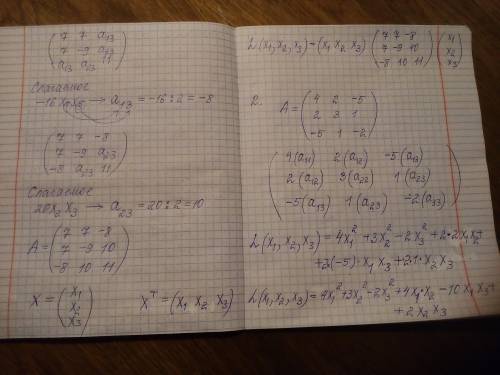 (7 7 a₁₃
7 -9 a₂₃
a₁₃ a₂₃ 11)
Слагаемое
-16x₁x₃ → a₁₃ = -16 : 2 = -8
(7 7 -8
7 -9 a₂₃
-8 a₂₃ 11)
Слагаемое
20x₂x₃ → a₂₃ = 20 : 2 = 10
A = (7 7 -8
7 -9 10
-8 10 11)
X = (x₁
x₂
x₃)
Xᵀ = (x₁ x₂ x₃)
L(x₁, x₂, x₃) = (x₁ x₂ x₃) (7 7 -8
7 -9 10
-8 10 11) (x₁
x₂
x₃)
2. A = (4 2 -5
2 3 1
-5 1 -2)
(4(a₁₁) 2(a₁₂) -5(a₁₃)
2(a₁₂) 3(a₂₂) 1(a₂₃)
-5(a₁₃) 1(a₂₃) -2(a₃₃))
L(x₁, x₂, x₃) = 4x₁² + 3x₂² - 2x₃² + 2·2x₁x₂ +
+ 2(-5)·x₁x₃ + 2·1·x₂x₃
L(x₁, x₂, x₃) = 4x₁² + 3x₂² - 2x₃² + 4x₁·x₂ - 10x₁x₃ +
+ 2x₂x₃